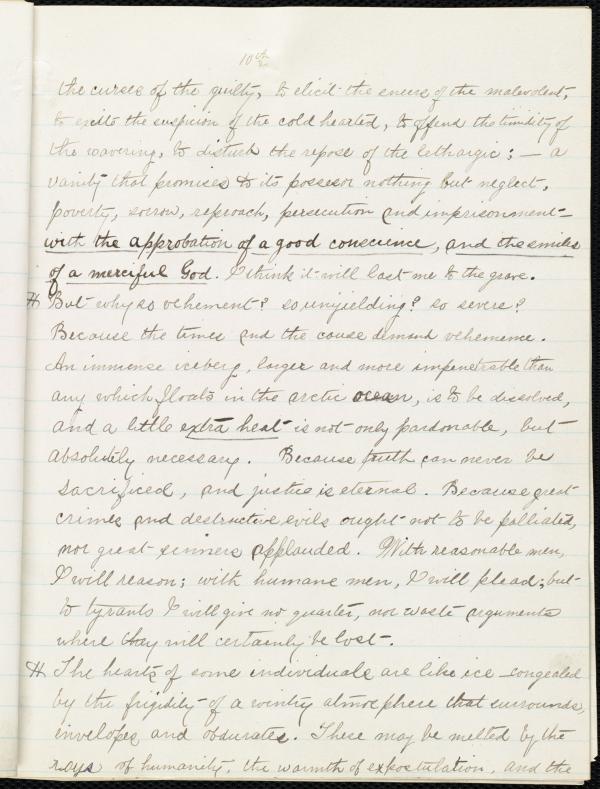 10th
the curses of the guilty, to elicit the sneers of the malevolent,
to excite the suspicion of the cold hearted, to offend the timidity of
the wavering, to disturb the repose of the lethargic; — a
vanity that promises to its possesor nothing but neglect,
poverty, sorrow, reproach, persecution and imprisonment—
with the approbation of a good conscience, and the smiles
of a merciful God. I think it will last me to the grave.
But why so vehement? so unyielding? so severe?
Because the times and the cause demand vehemence.
An immense iceberg, larger and more impenetrable than
any which floats in the arctic ocean, is to be dissolved,
and a little extra heat is not only pardonable, but
absolutely necessary. Because truth can never be
sacrificed, and justice is eternal. Because great
crimes and destructive evils ought not to be palliated,
nor great sinners applauded. With reasonable men,
I will reason; with humane men, I will plead; but
to tyrants I will give no quarter, nor waste arguments
where they will certainly be lost.
The hearts of some individuals are like ice—congealed
by the frigidity of a wintry atmosphere that surrounds,
envelopes and obdurates. These may be melted by the
rays of humanity, the warmth of expostulation, and the